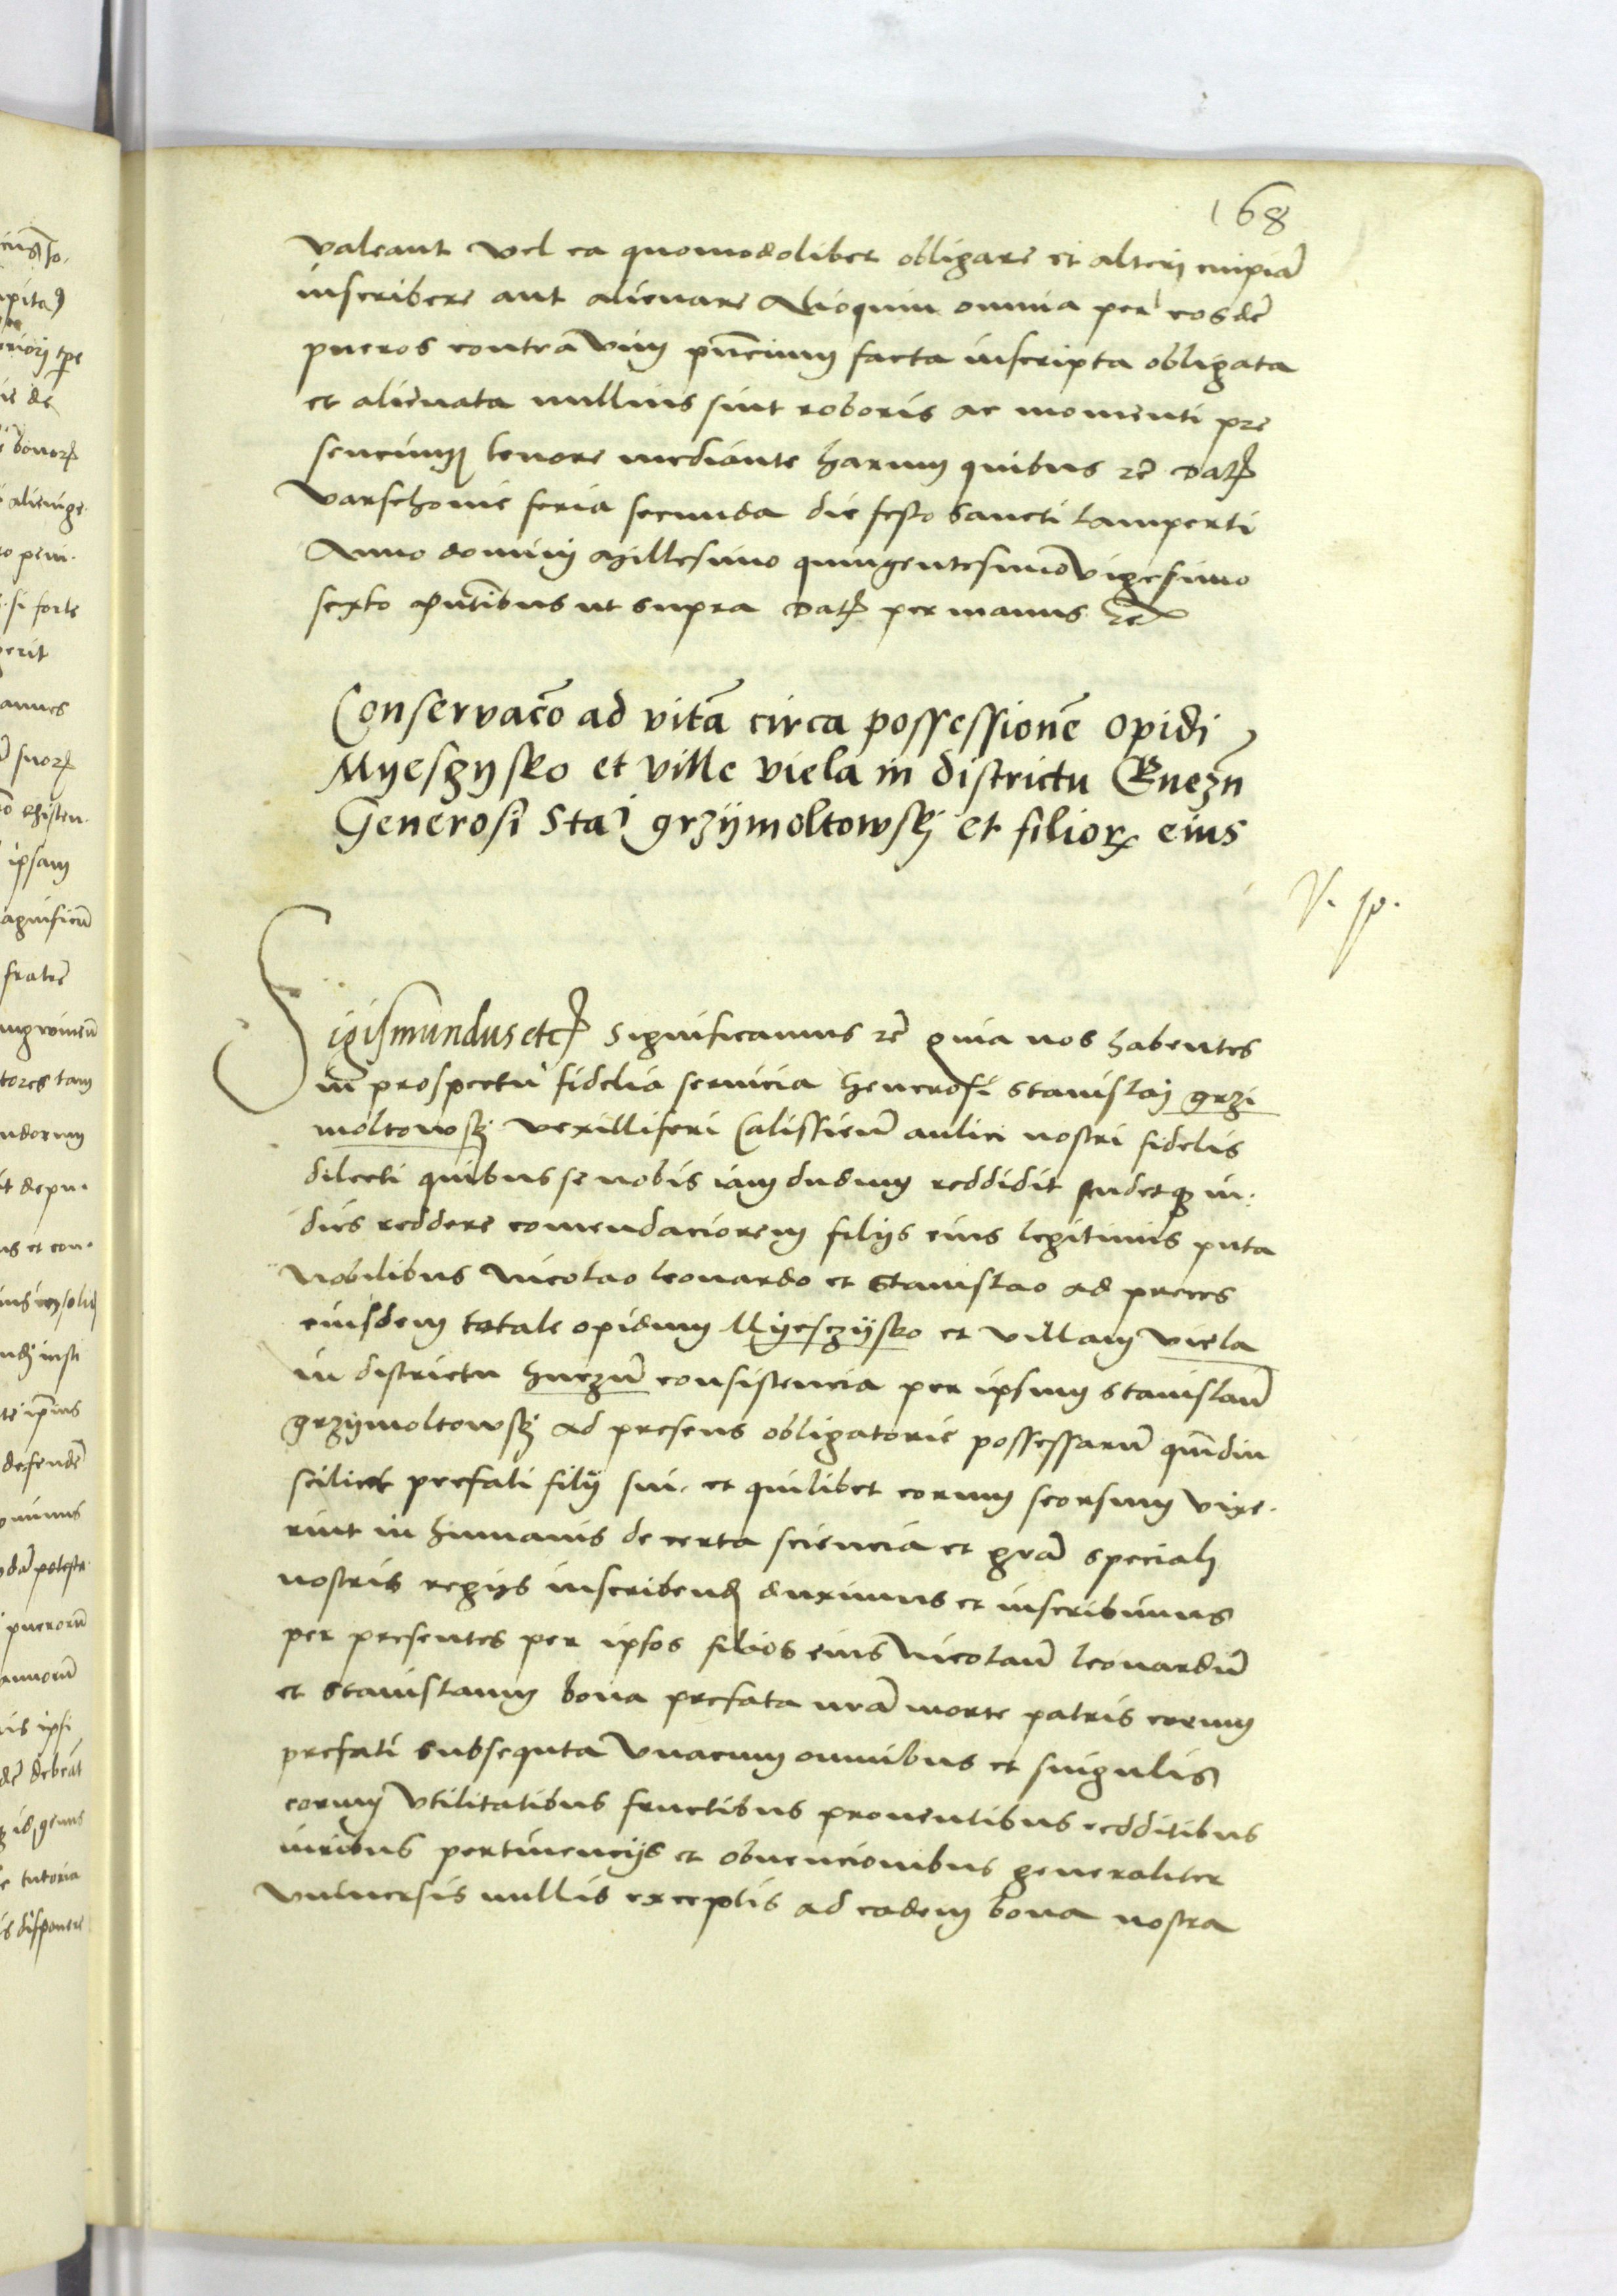 168
valeant vel ea quomodolibet obligare et alteri cuipiā
inscribere aut alienare Alioquin omnia per eosdē
pueros contra vim pñcium facta inscripta obligata
et alienata nullius sint roboris ac momenti pre
sencium tenore mediante harum quibus rē Datꝭ
varschovie feria secunda die festo sancti lamperti
Anno domini Millesimo quingentesimo vigesimo
sexto pñtibus ut supra Datꝭ per manus rē
Conservacō ad vitā circa possessionē opidi
Myeszysko et ville viela in districtu Gnezñ
Generosi Stai grzijmoltowskj et filiorꝝ eius
V. p.
Sigismundus etcꝭ Significamus rē quia nos habentes
in prospectu fidelia servicia Generosi stanislaj grzi
moltowskj vexilliferi Calissieñ aulici nostri fidelis
dilecti quibus se nobis iam dudum reddidit studetqꝫ in
dies reddere comendaciorem filijs eius legitimis puta
Nobilibus Nicolao leonardo et Stanislao ad preces
eiusdem totale opidum Myesczijsko et villam viela
in districtu Gnezñ consistencia per ipsum stanislaū
grzijmoltowskj ad presens obligatorie possessarū quādiu
scilicet prefati filij sui et quilibet eorum seorsum vixe
rint in humanis de certa sciencia et grā speciali
nostris regijs inscribend duximus et inscribimus
per presentes per ipsos filios eius Nicolaū leonardū
et stanislaum bona prefata nrā morte patris eorum
prefati subsequta vnacum omnibus et singulis
eorum vtilitatibus fructibus proventibus redditibus
iuribus pertinencijs et obvencionibus generaliter
vniversis nullis exceptis ad eadem bona nostra